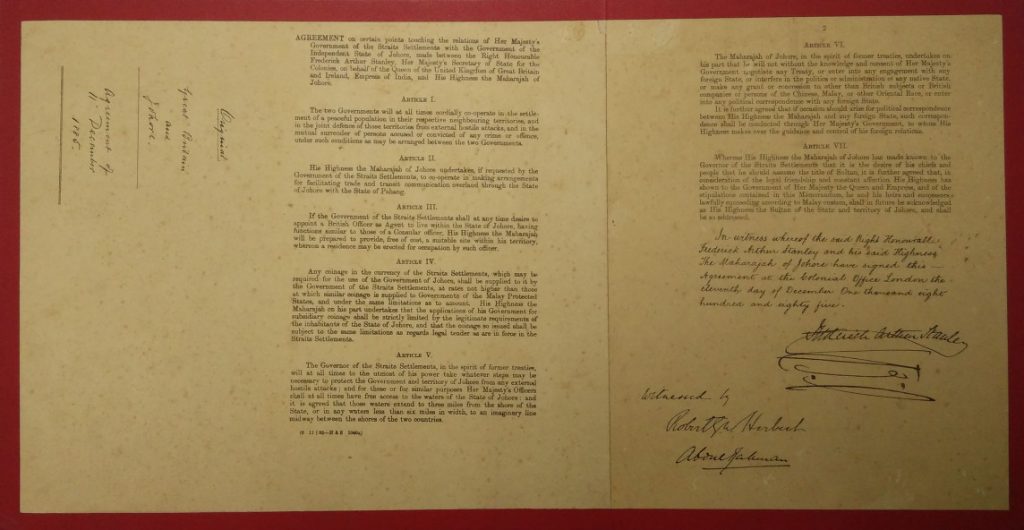 Original
Great Britain
and
Johore.
Agreement of
11th December
1885.
AGREEMENT on certain points touching the relations of Her Majesty's
Government of the Straits Settlements with the Government of the
Independent State of Johore, made between the Right Honourable
Frederick Arthur Stanley, Her Majesty's Secretary of State for the
Colonies, on behalf of the Queen of the United Kingdom of Great Britain
and Ireland, Empress of India, and His Highness the Maharajah of
Johore.
ARTICLE I.
The two Governments will at all times cordially co-operate in the settle-
ment of a peaceful population in their respective neighbouring territories, and
in the joint defence of those territories from external hostile attacks, and in the
mutual surrender of persons accused or convicted of any crime or offence,
under such conditions as may be arranged between the two Governments.
ARTICLE II.
His Highness the Maharajah of Johore undertakes, if requested by the
Government of the Straits Settlements, to co-operate in making arrangements
for facilitating trade and transit communication overland through the State
of Johore with the State of Pahang.
ARTICLE III.
If the Government of the Straits Settlements shall at any time desire to
appoint a British Officer as Agent to live within the State of Johore, having
functions similar to those of a Consular officer, His Highness the Maharajah
will be prepared to provide, free of cost, a suitable site within his territory,
whereon a residence may be erected for occupation by such officer.
ARTICLE IV.
Any coinage in the currency of the Straits Settlements, which may be
required for the use of the Government of Johore, shall be supplied to it by
the Government of the Straits Settlements, at rates not higher than those
at which similar coinage is supplied to Governments of the Malay Protected
States, and under the same limitations as to amount. His Highness the
Maharajah on his part undertakes that the applications of his Government for
subsidiary coinage shall be strictly limited by the legitimate requirements of
the inhabitants of the State of Johore, and that the coinage so issued shall be
subject to the same limitations as regards legal tender as are in force in the
Straits Settlements.
ARTICLE V.
The Governor of the Straits Settlements, in the spirit of former treaties,
will at all times to the utmost of his power take whatever steps may be
necessary to protect the Government and territory of Johore from any external
hostile attacks; and for these or for similar purposes Her Majesty's Officers
shall at all times have free access to the waters of the State of Johore; and
it is agreed that those waters extend to three miles from the shore of the
State, or in any waters less than six miles in width, to an imaginary line
midway between the shores of the two countries.
2
ARTICLE VI.
The Maharajah of Johore, in the spirit of former treaties, undertakes on
his part that he will not without the knowledge and consent of Her Majesty's
Government negotiate any Treaty, or enter into any engagement with any
foreign State, or interfere in the politics or administration of any native State,
or make any grant or concession to other than British subjects or British
companies or persons of the Chinese, Malay, or other Oriental Race, or enter
into any political correspondence with any foreign State.
It is further agreed that if occasion should arise for political correspondence
between His Highness the Maharajah and any foreign State, such correspon-
dence shall be conducted through Her Majesty's Government, to whom His
Highness makes over the guidance and control of his foreign relations.
ARTICLE VII.
Whereas His Highness the Maharajah of Johore has made known to the
Governor of the Straits Settlements that it is the desire of his chiefs and
people that he should assume the title of Sultan, it is further agreed that, in
consideration of the loyal friendship and constant affection His Highness has
shown to the Government of Her Majesty the Queen and Empress, and of the
stipulations contained in this Memorandum, he and his heirs and successors
lawfully succeeding according to Malay custom, shall in future be acknowledged
as His Highness the Sultan of the State and territory of Johore, and shall
be so addressed.
In witness whereof the said Right Honourable
Frederick Arthur Stanley and his said Highness
The Maharajah of Johore have signed this
Agreement at the Colonial Office London the
eleventh day of December One thousand eight
hundred and eighty five.
Frederick Arthur Stanley
Witnessed by
Robert G W Herbert
Abdul Rahman